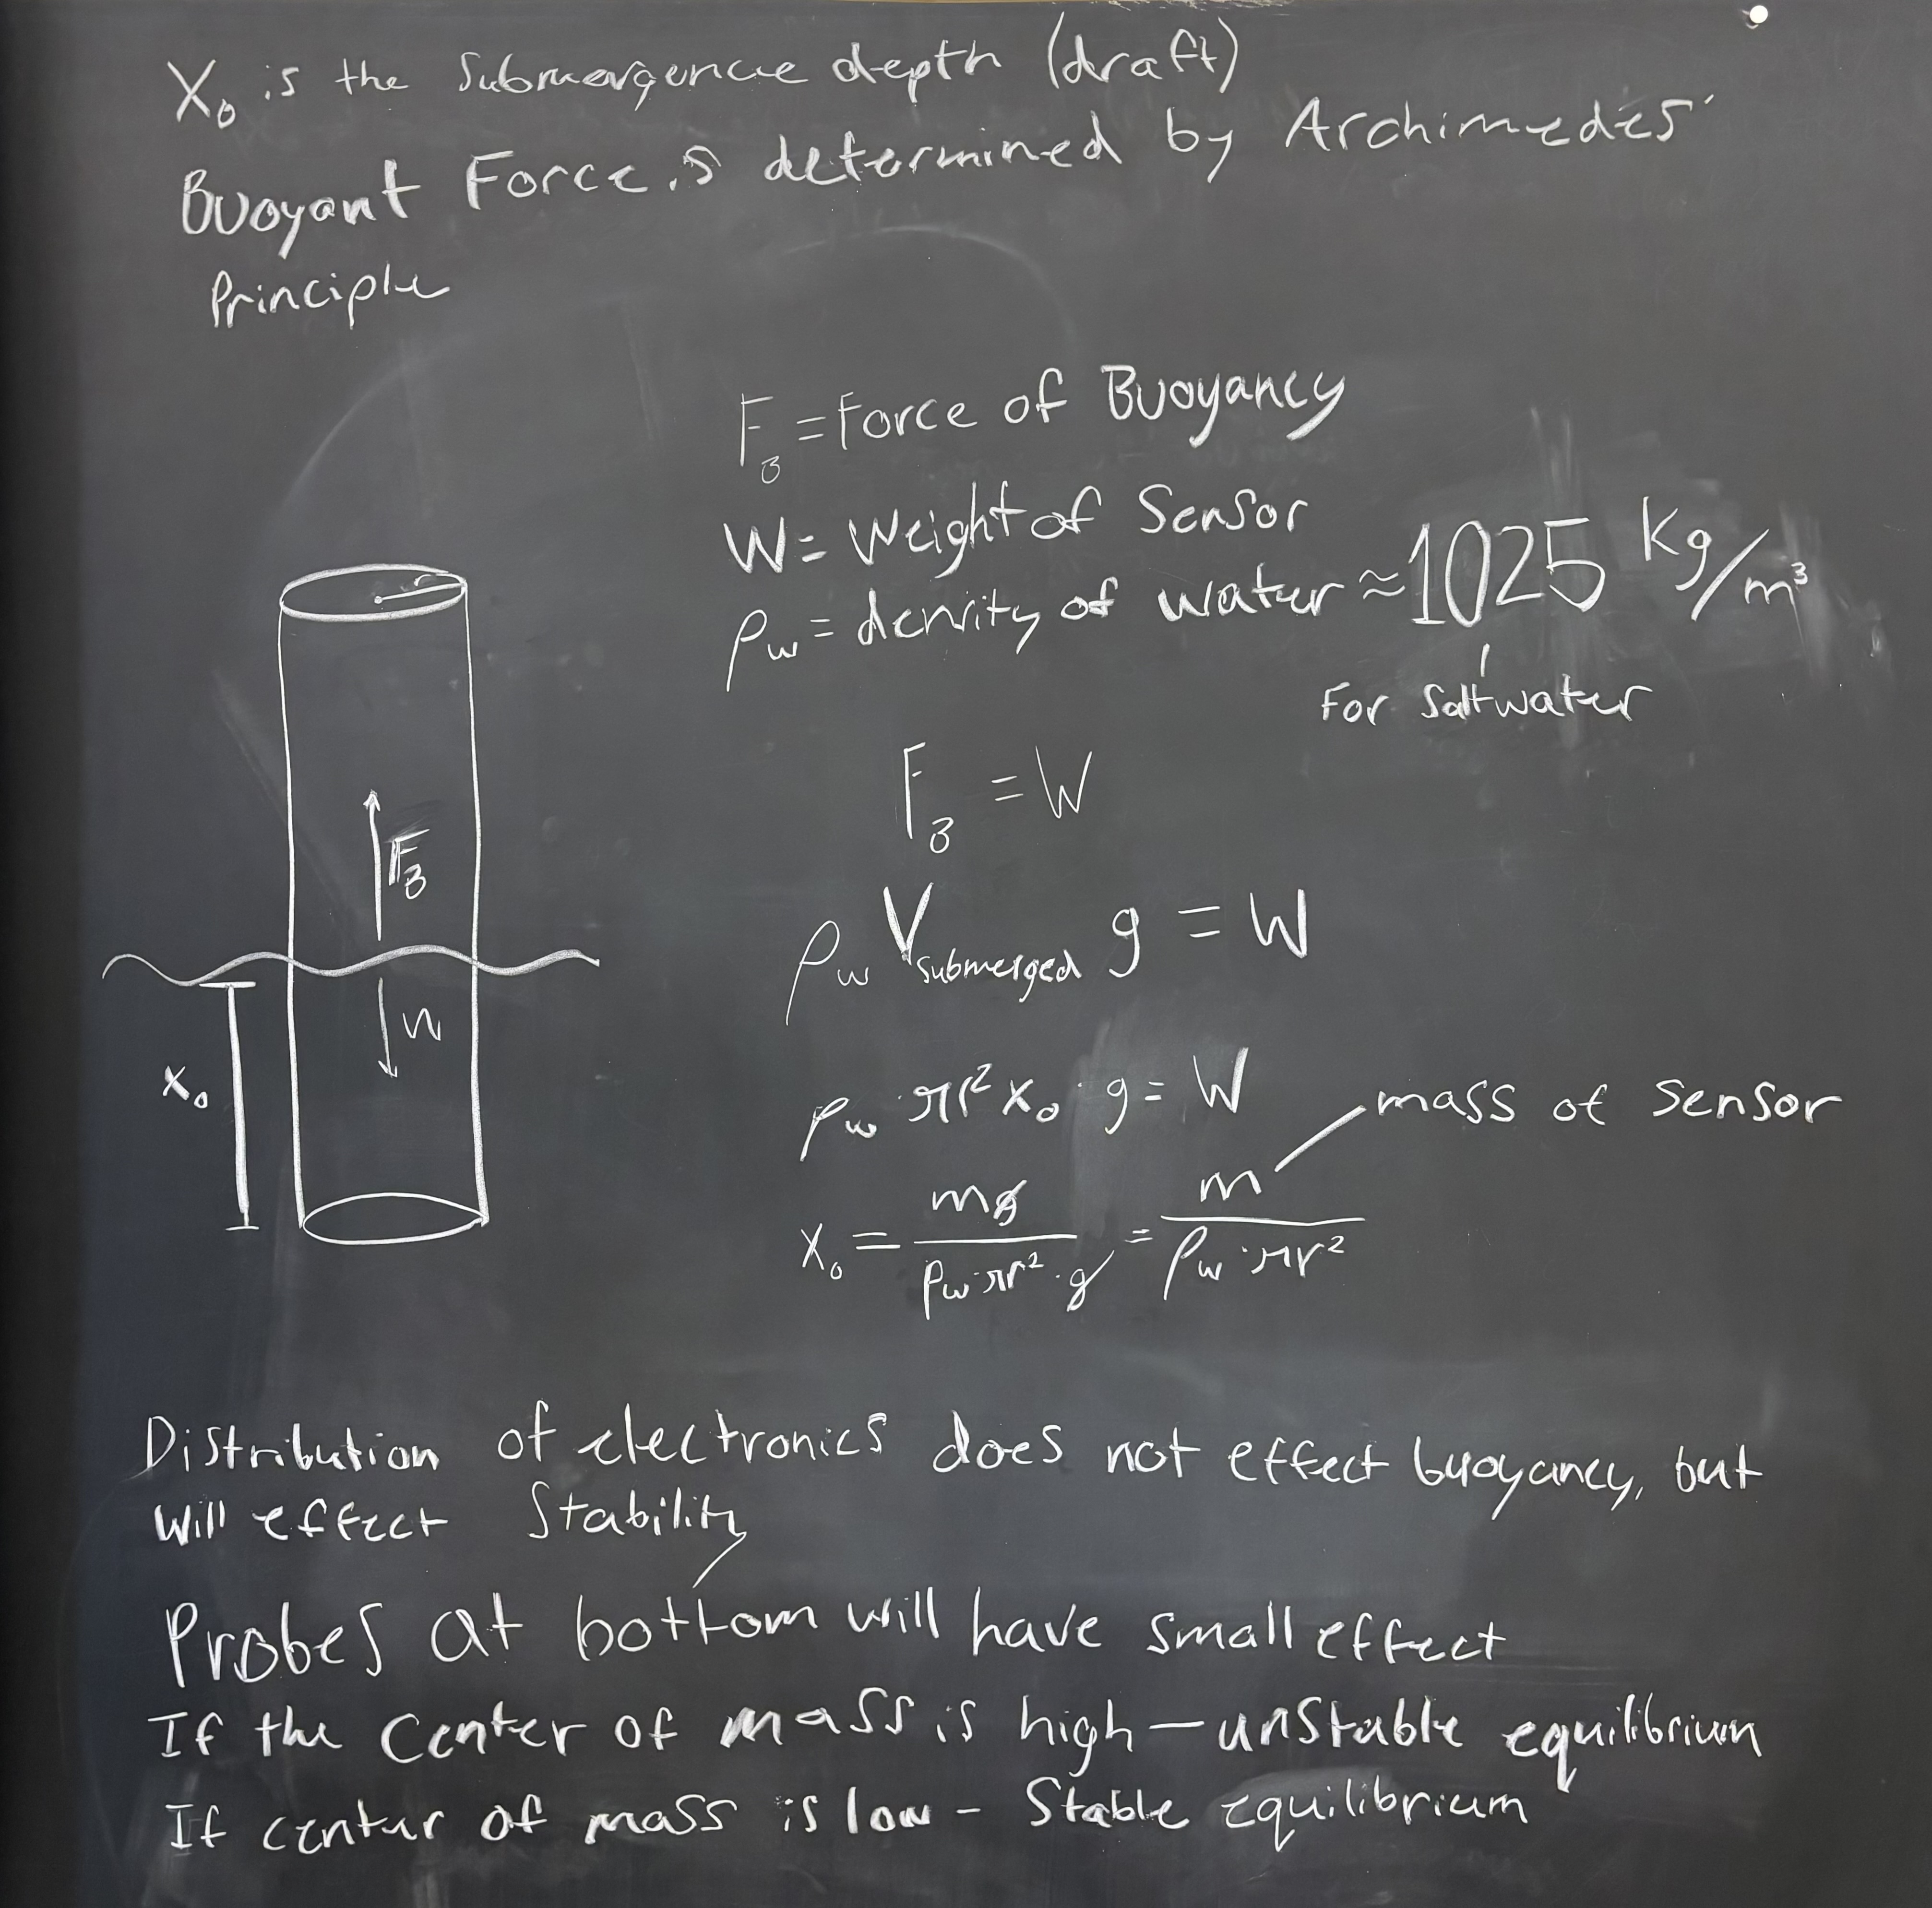 X₀ is the Submergence depth (draft)
Buoyant Force is determined by Archimedes'
Principle
F_B = Force of Buoyancy
W = Weight of Sensor
ρ_w = density of water ≈ 1025 Kg/m³
For Saltwater
r
F_B = W
F_B
ρ_w V_submerged g = W
W
x₀
ρ_w · πr² x₀ · g = W
mass of sensor
x₀ = mg / (ρ_w · πr² · g) = m / (ρ_w · πr²)
Distribution of electronics does not effect buoyancy, but
will effect Stability
Probes at bottom will have small effect
If the Center of mass is high – unstable equilibrium
If center of mass is low – Stable equilibrium